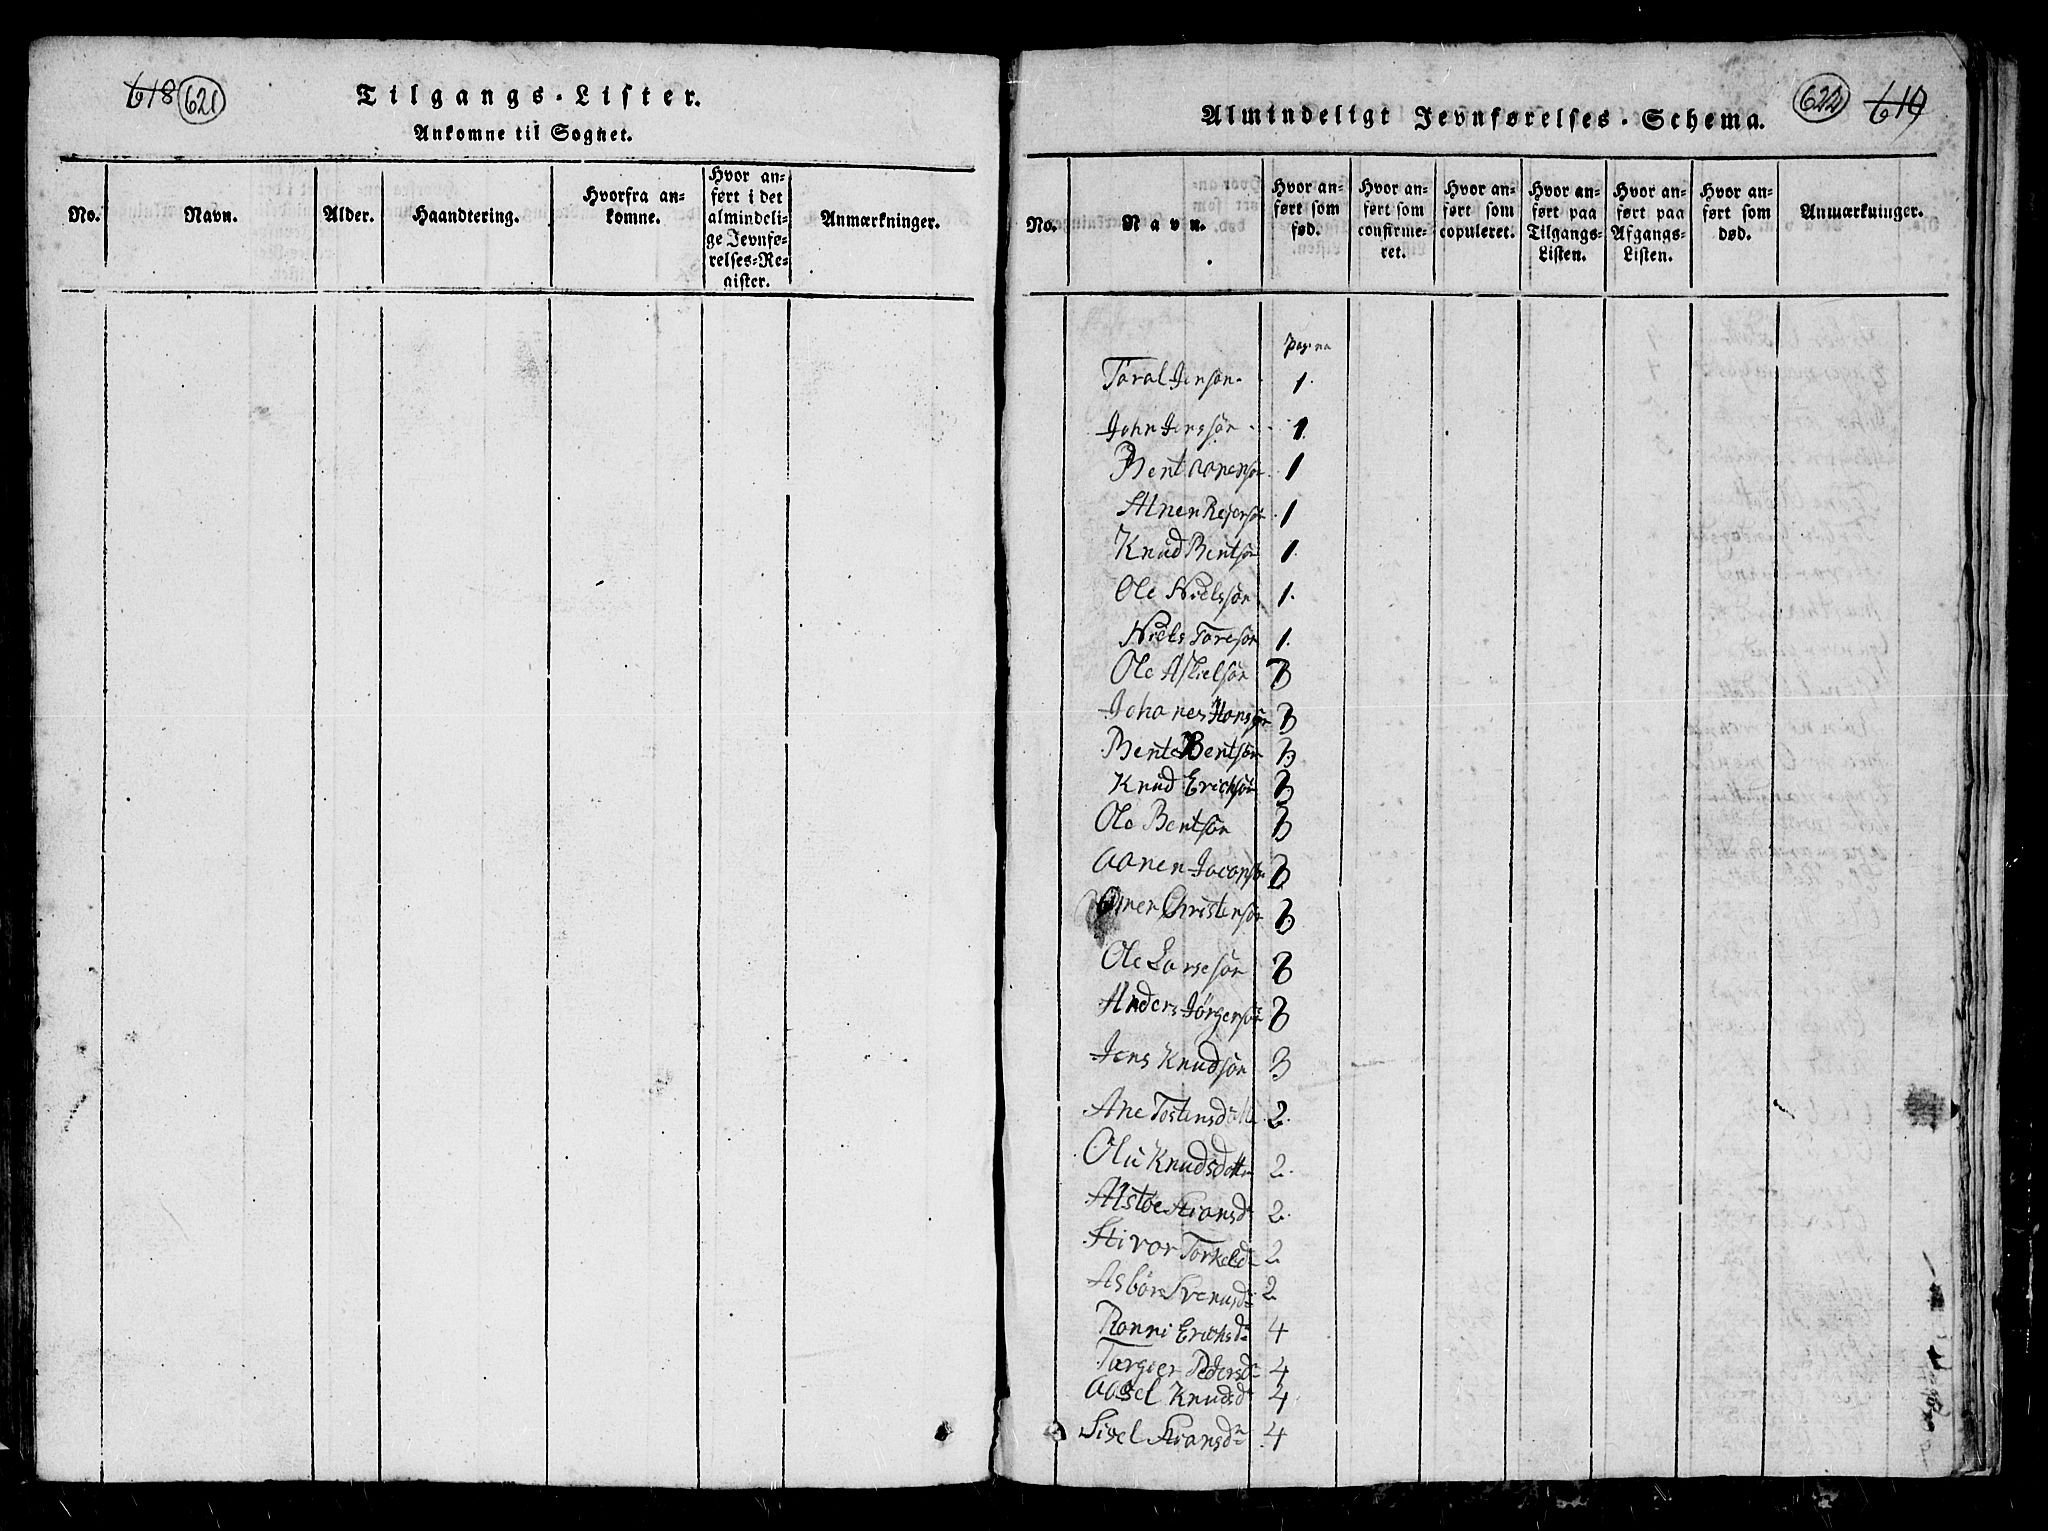 618 621
Tilgangs-Lister.
Ankomne til Sognet.
No.
Navn.
Alder.
Haandtering.
Hvorfra an-
komne.
Hvor an-
ført i det
almindeli-
ge Jevnfø-
relses-Re-
gister.
Anmærkninger.
622 619
Almindeligt Jevnførelses-Schema.
No.
Navn.
Hvor an-
ført som
fød.
Hvor an-
ført som
confirme-
ret.
Hvor an-
ført som
copuleret.
Hvor an-
ført paa
Tilgangs-
Listen.
Hvor an-
ført paa
Afgangs-
Listen.
Hvor an-
ført som
død.
Anmærkninger.
pagina
Taral Jensøn 1.
John Jenssøn 1.
Bent Aanensøn 1
Anen Rejersøn 1
Knud Bentsøn 1.
Ole Nielssøn 1.
Niels Toresøn 1.
Ole Askielsøn 3
Johanes Hanssøn 3
Bent Bentsøn 3
Knud Erichsøn 3
Ole Bentsøn 3
Aanen Jacobsøn 3
Omer Christensøn 3
Ole Larsesøn 3
Anders Jørgensøn 3
Jens Knudsøn 3
Ane Tostensdotte 2.
Olu Knudsdotter 2.
Alstoe Stiansdr 2.
Stivor Torkelsdr 2
Asbør Svenusdr 2
Ronni Erichsdr 4
Targier Pedersdr 4
Aasel Knudsdr 4
Sivel Stiansdr 4